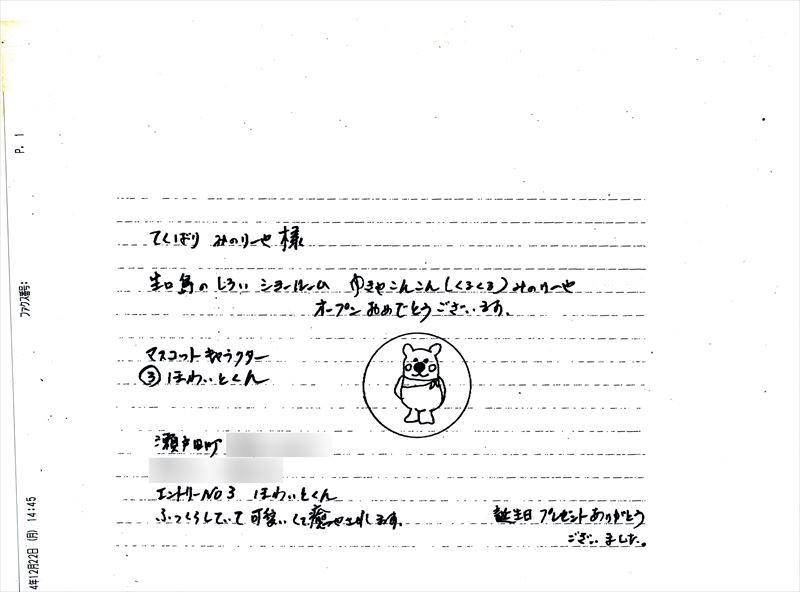 てくばり みのりーや 様
生口島の しろい ショールーム ゆきやこんこん(くるくる)みのりーや
オープン おめでとうございます。
マスコットキャラクター
③ ほわいとくん
瀬戸田町
エントリーNO3 ほわいとくん
ふっくらしていて可愛いくて癒やされます。
誕生日プレゼントありがとう
ございました。
P. 1
ファクス番号:
4年12月22日 (月) 14:45